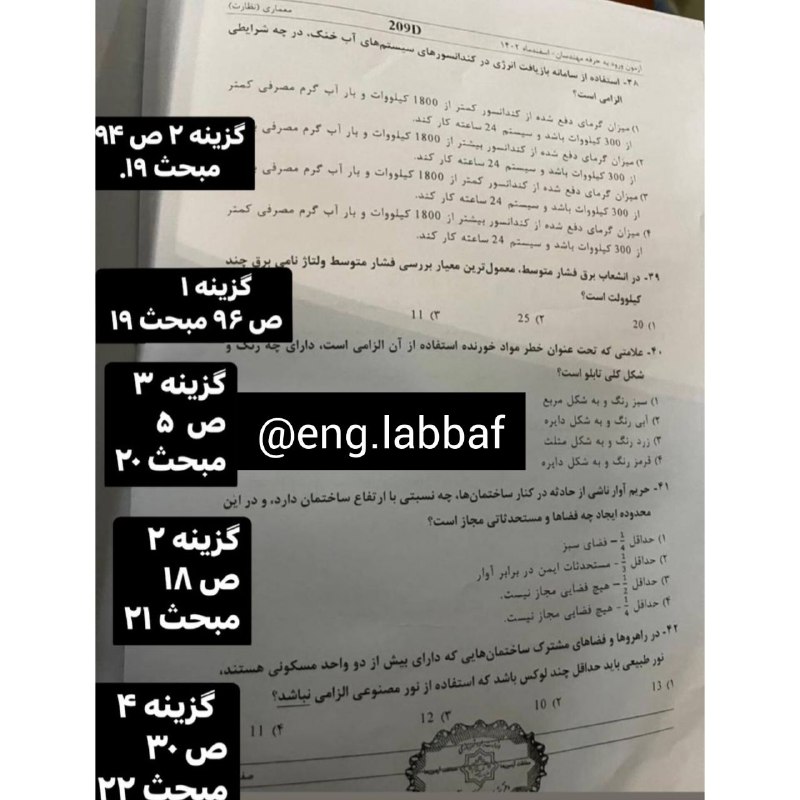 معماری (نظارت)
209D
آزمون ورود به حرفه مهندسان - اسفندماه ۱۴۰۲
۳۸- استفاده از سامانه بازیافت انرژی در کندانسورهای سیستم‌های آب خنک، در چه شرایطی
الزامی است؟
۱) میزان گرمای دفع شده از کندانسور کمتر از 1800 کیلووات و بار آب گرم مصرفی کمتر
از 300 کیلووات باشد و سیستم 24 ساعته کار کند.
۲) میزان گرمای دفع شده از کندانسور بیشتر از 1800 کیلووات و بار آب گرم مصرفی
از 300 کیلووات باشد و سیستم 24 ساعته کار کند.
۳) میزان گرمای دفع شده از کندانسور کمتر از 1800 کیلووات و بار آب گرم مصرفی
از 300 کیلووات باشد و سیستم 24 ساعته کار کند.
۴) میزان گرمای دفع شده از کندانسور بیشتر از 1800 کیلووات و بار آب گرم مصرفی کمتر
از 300 کیلووات باشد و سیستم 24 ساعته کار کند.
گزینه ۲ ص ۹۴
مبحث ۱۹.
۳۹- در انشعاب برق فشار متوسط، معمول‌ترین معیار بررسی فشار متوسط ولتاژ نامی برق چند
کیلوولت است؟
۱) 20 ۲) 25 ۳) 11
گزینه ۱
ص ۹۶ مبحث ۱۹
۴۰- علامتی که تحت عنوان خطر مواد خورنده استفاده از آن الزامی است، دارای چه رنگ و
شکل کلی تابلو است؟
۱) سبز رنگ و به شکل مربع
۲) آبی رنگ و به شکل دایره
۳) زرد رنگ و به شکل مثلث
۴) قرمز رنگ و به شکل دایره
گزینه ۳
ص ۵
مبحث ۲۰
@eng.labbaf
۴۱- حریم آوار ناشی از حادثه در کنار ساختمان‌ها، چه نسبتی با ارتفاع ساختمان دارد، و در این
محدوده ایجاد چه فضاها و مستحدثاتی مجاز است؟
۱) حداقل 1/4 - فضای سبز
۲) حداقل 1/3 - مستحدثات ایمن در برابر آوار
۳) حداقل 1/2 - هیچ فضایی مجاز نیست.
۴) حداقل 1/4 - هیچ فضایی مجاز نیست.
گزینه ۲
ص ۱۸
مبحث ۲۱
۴۲- در راهروها و فضاهای مشترک ساختمان‌هایی که دارای بیش از دو واحد مسکونی هستند،
نور طبیعی باید حداقل چند لوکس باشد که استفاده از نور مصنوعی الزامی نباشد؟
۱) 13 ۲) 10 ۳) 12 ۴) 11
گزینه ۴
ص ۳۰
مبحث ۲۲